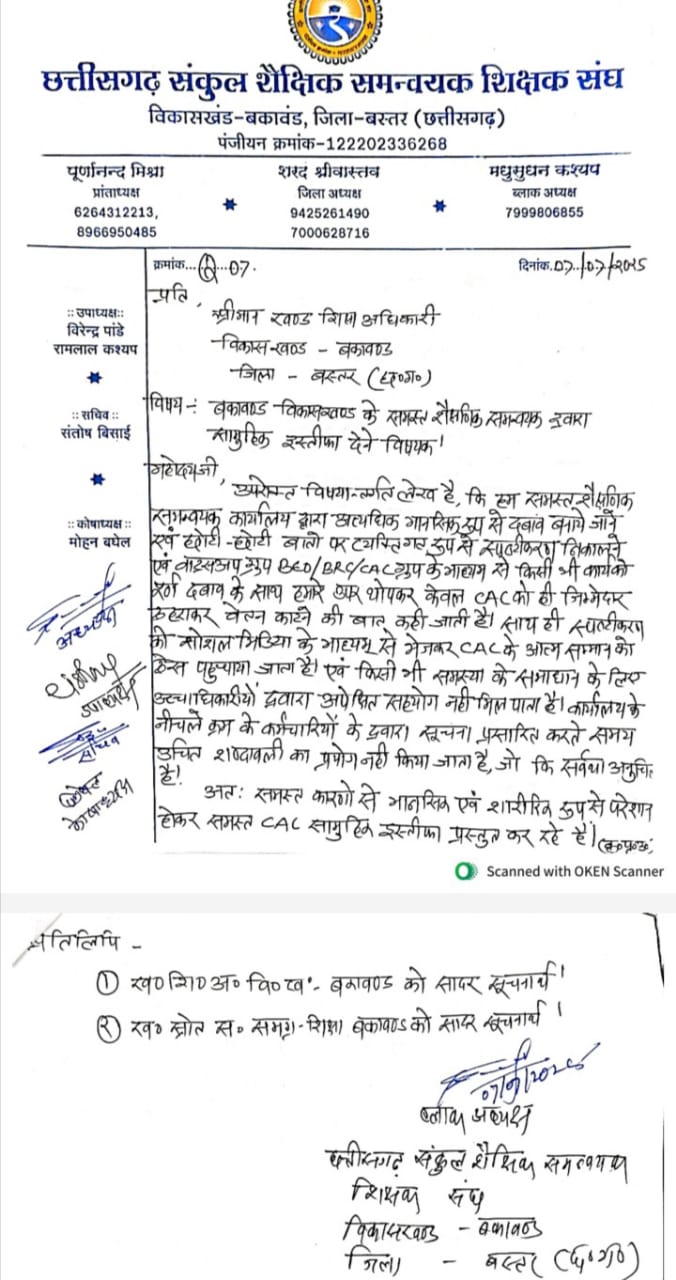 छत्तीसगढ़ संकुल शैक्षिक समन्वयक शिक्षक संघ
विकासखंड-बकावंड, जिला-बस्तर (छत्तीसगढ़)
पंजीयन क्रमांक-122202336268
पूर्णानन्द मिश्रा
प्रांताध्यक्ष
6264312213,
8966950485
शरद श्रीवास्तव
जिला अध्यक्ष
9425261490
7000628716
मधुसुधन कश्यप
ब्लाक अध्यक्ष
7999806855
क्रमांक...Q...07.
दिनांक.07./07/2025
:: उपाध्यक्ष::
विरेन्द्र पांडे
रामलाल कश्यप
:: सचिव ::
संतोष बिसाई
:: कोषाध्यक्ष ::
मोहन बघेल
अध्यक्ष
उपाध्यक्ष
सचिव
कोषाध्यक्ष
प्रति,
श्रीमान खण्ड शिक्षा अधिकारी
विकास-खण्ड - बकावण्ड
जिला - बस्तर (छ०ग०)
विषय -: बकावण्ड विकासखण्ड के समस्त शैक्षणिक समन्वयक द्वारा
सामुहिक इस्तीफा देने विषयक।
महोदयजी,
उपरोक्त विषया-न्तर्गत लेख है, कि हम समस्त शैक्षणिक
समन्वयक कार्यालय द्वारा अत्यधिक मानसिक रूप से दबाव बनाये जाने
एवं छोटी-छोटी बातो पर व्यक्तिगत रूप से स्पष्टीकरण निकालने
एवं वाट्सअप ग्रुप BEO/BRC/CAC ग्रुप के माध्यम से किसी भी कार्य को
पूर्ण दबाव के साथ हमारे उपर थोपकर केवल CAC को ही जिम्मेदार
ठहराकर वेतन काटने की बात कही जाती है। साथ ही स्पष्टीकरण
को सोशल मिडिया के माध्यम से भेजकर CAC के आत्म सम्मान को
ठेस पहुचाया जाता है। एवं किसी भी समस्या के समाधान के लिए
उच्चाधिकारीयों द्वारा अपेक्षित सहयोग नही मिल पाता है। कार्यालय के
नीचले क्रम के कर्मचारियों के द्वारा सूचना प्रसारित करते समय
उचित शब्दावली का प्रयोग नही किया जाता है, जो कि सर्वथा अनुचित
है।
अतः समस्त कारणो से मानसिक एवं शारीरिक रूप से परेशान
होकर समस्त CAC सामुहिक इस्तीफा प्रस्तुत कर रहे है।
Scanned with OKEN Scanner
प्रतिलिपि -
① ख०शि०अ० वि०ख०- बकावण्ड को सादर सूचनार्थ।
② ख० स्रोत स० समग्र-शिक्षा बकावण्ड को सादर सूचनार्थ।
07/07/2025
ब्लाक अध्यक्ष
छत्तीसगढ़ संकुल शैक्षिक समन्वयक
शिक्षक संघ
विकासखण्ड - बकावण्ड
जिला - बस्तर (छ०ग०)